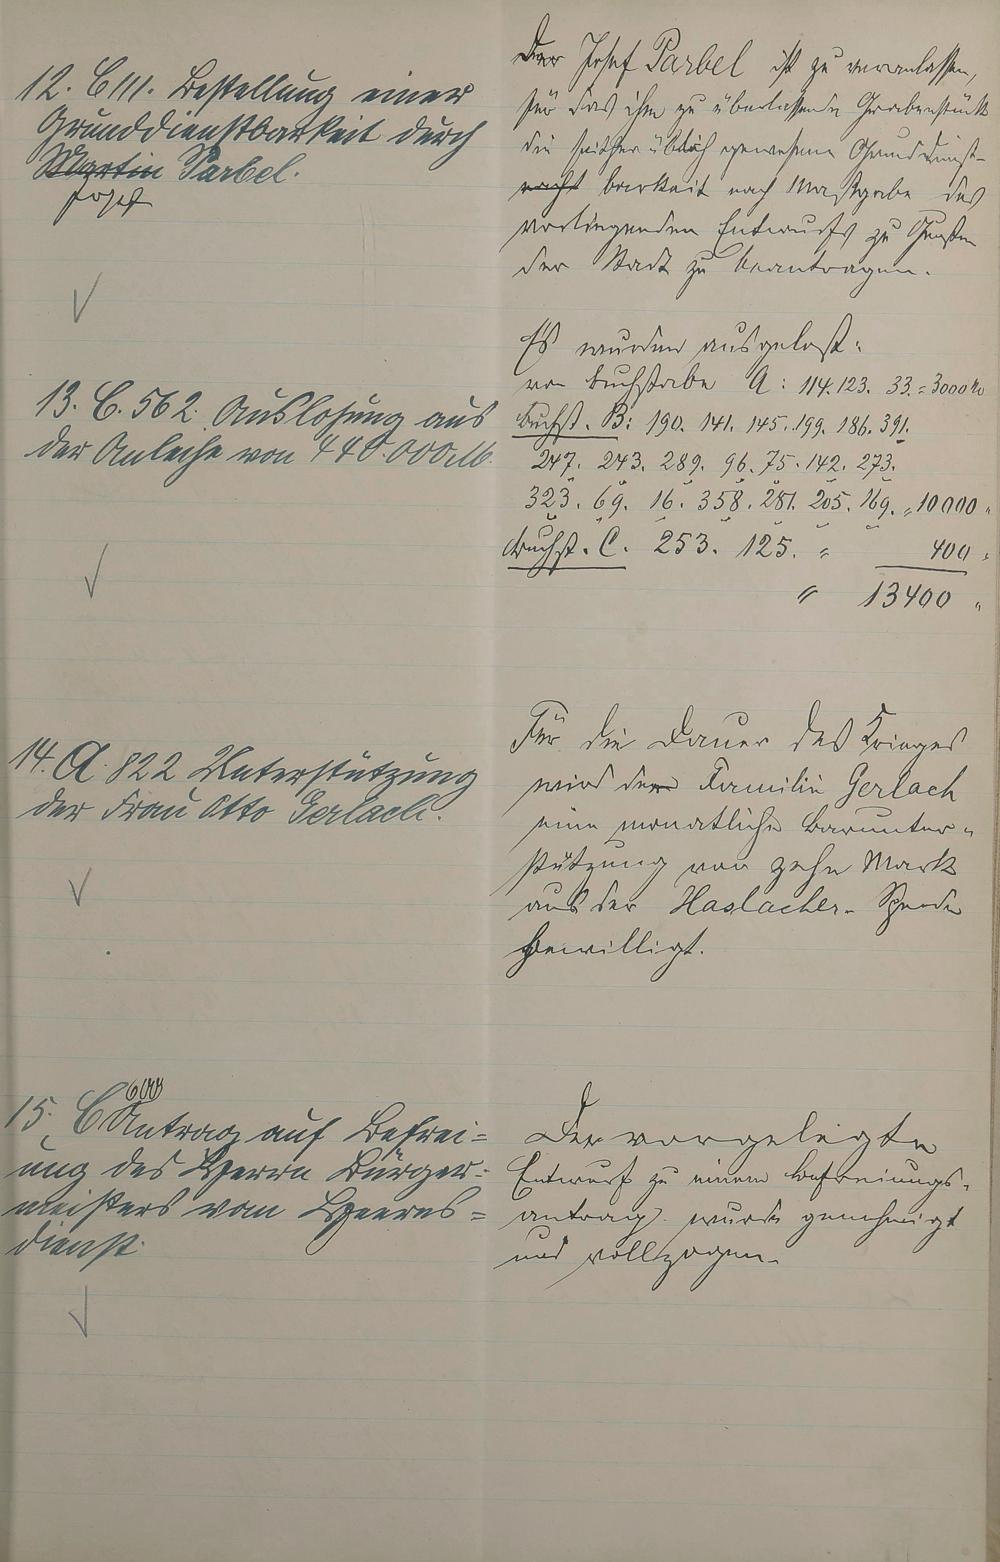 12. C 111. Bestellung einer
Grunddienstbarkeit durch
Martin Parbel.
Josef
Der Josef Parbel ist zu veranlassen,
für das ihm zu überlassende Grabenstück
die seither üblich gewesene Grunddienst-
barkeit nach Maßgabe des
vorliegenden Entwurfs zu Gunsten
der Stadt zu beantragen.
13. C. 562. Auslosung aus
der Anleihe von 440.000 M.
Es wurden ausgelost:
von Buchstabe A: 114. 123. 33. = 3000 M
Buchst. B: 190. 141. 145. 199. 186. 391.
247. 243. 289. 96. 75. 142. 273.
323. 69. 16. 358. 281. 205. 169. = 10000 "
Buchst. C. 253. 125. = 400 "
= 13400 "
14. A. 822 Unterstützung
der Frau Otto Gerlach.
Für die Dauer des Krieges
wird der Familie Gerlach
eine monatliche Barunter-
stützung von zehn Mark
aus der Haslacher-Spende
bewilligt.
15. C 600 Antrag auf Befrei=
ung des Herrn Bürger=
meisters vom Heeres=
dienst.
Der vorgelegte
Entwurf zu einem Befreiungs-
antrag wurde genehmigt
und vollzogen.